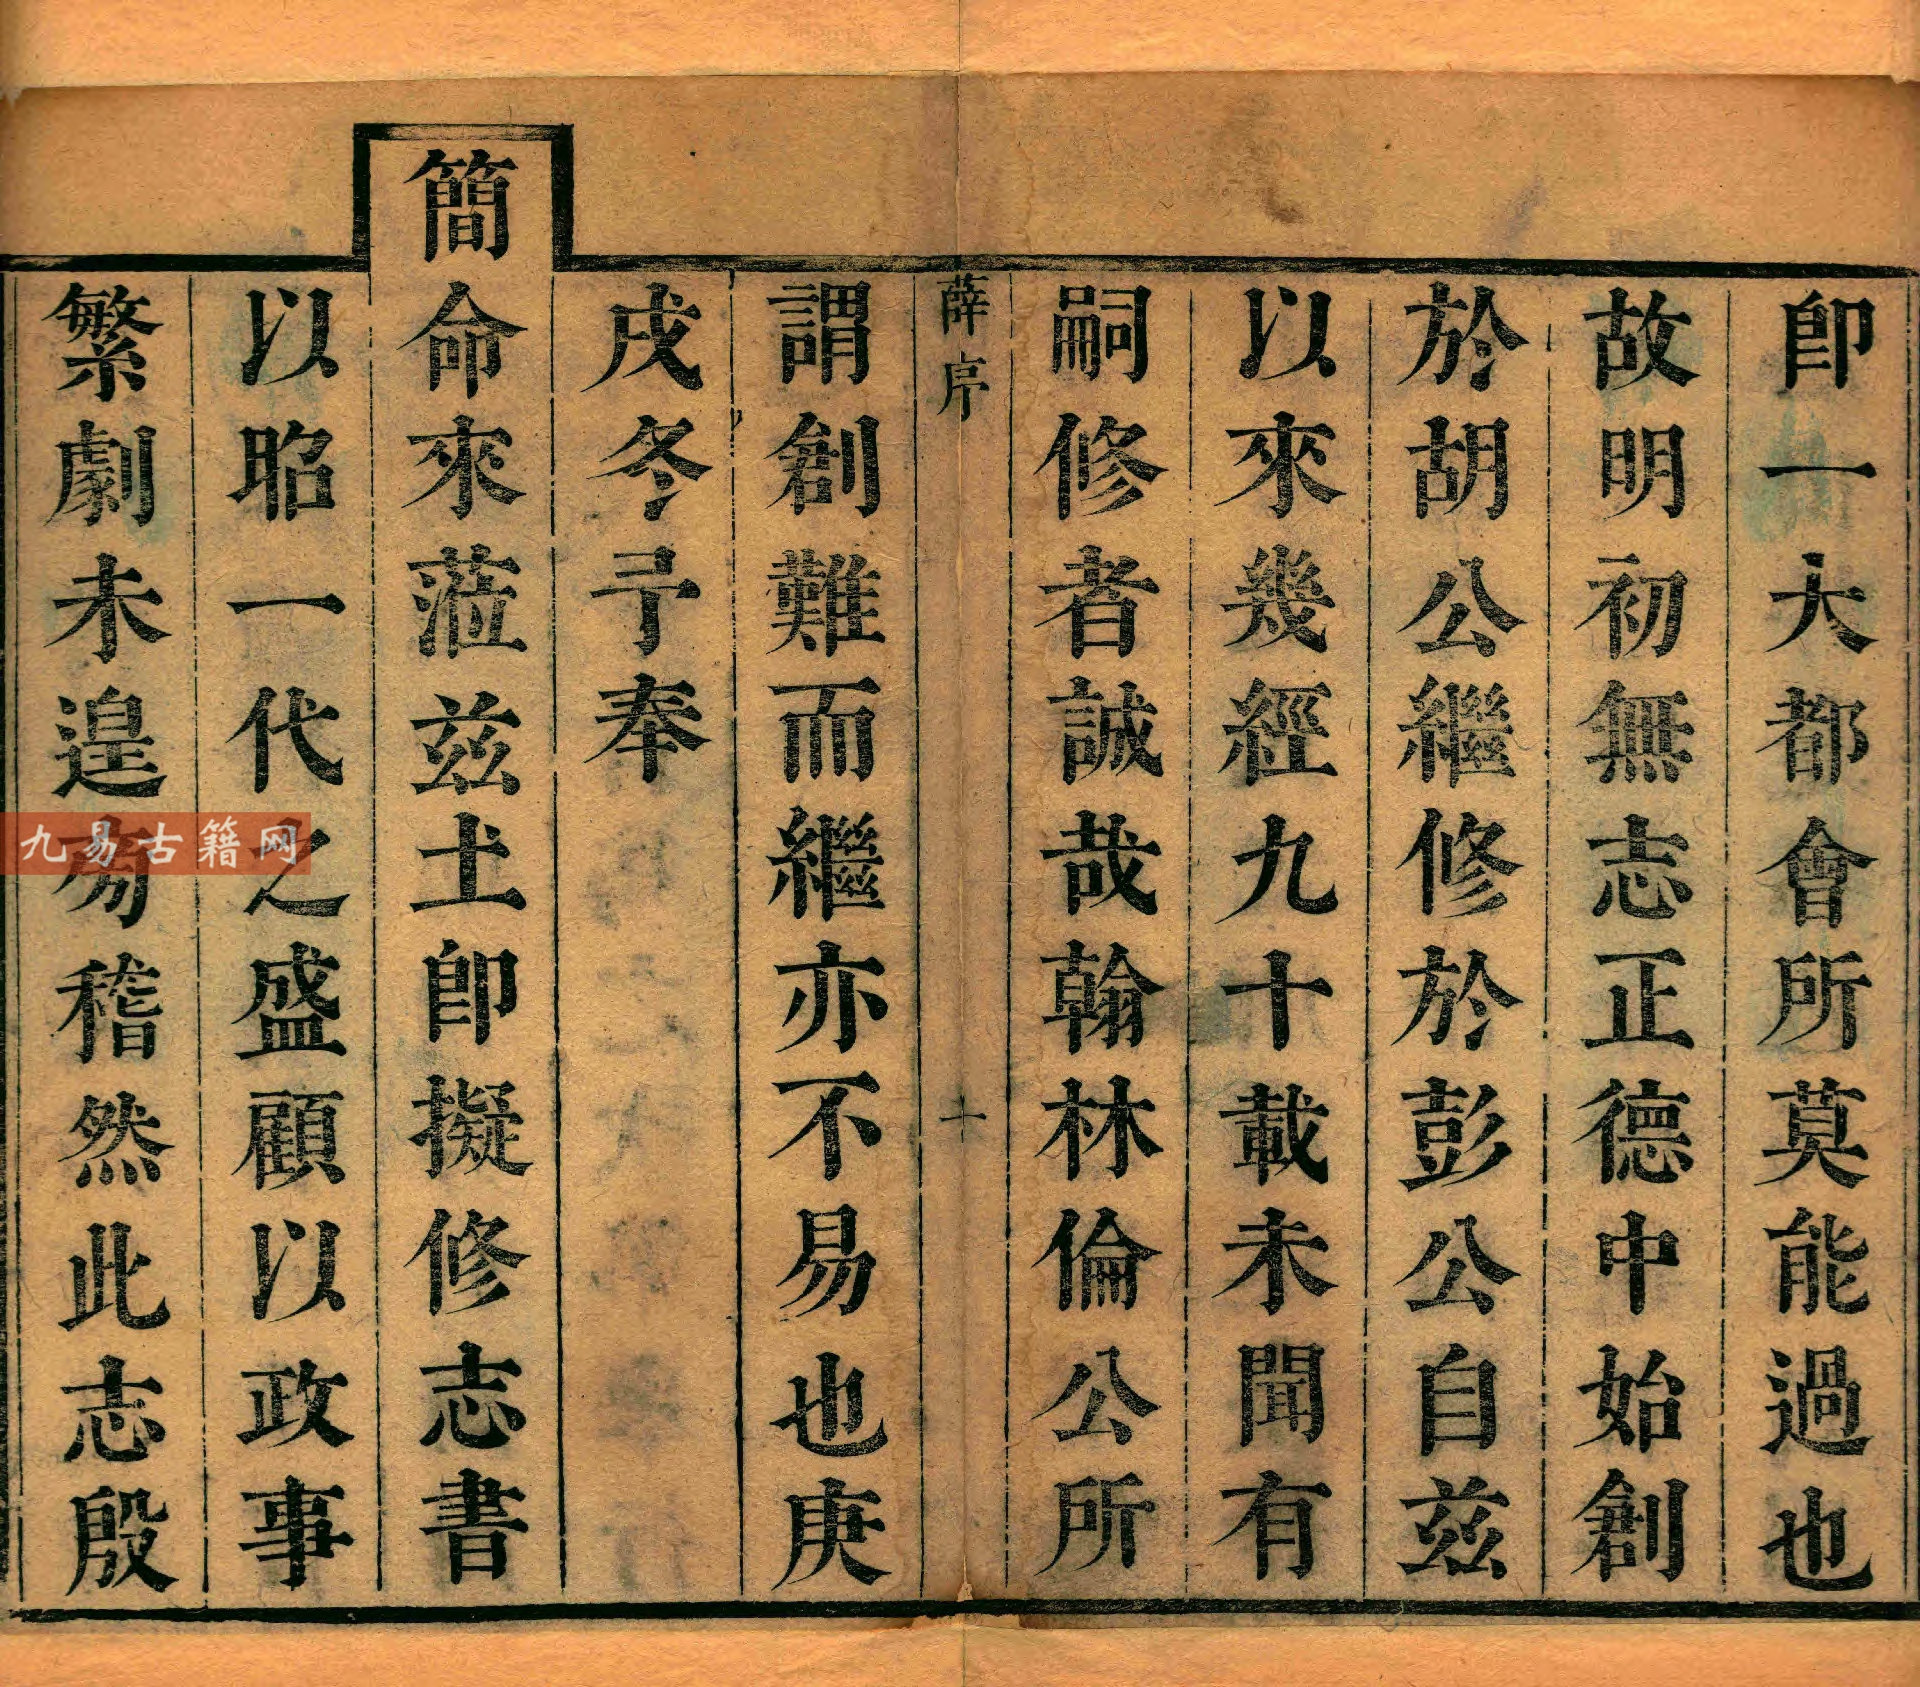 卽一大都會所莫能過也
故明初無志正德中始創
於胡公繼修於彭公自茲
以來幾經九十載未聞有
嗣修者誠哉翰林倫公所
薛序
十
謂創難而繼亦不易也庚
戌冬予奉
簡命來蒞茲土卽擬修志書
以昭一代之盛顧以政事
繁劇未遑旁稽然此志殷
九易古籍网